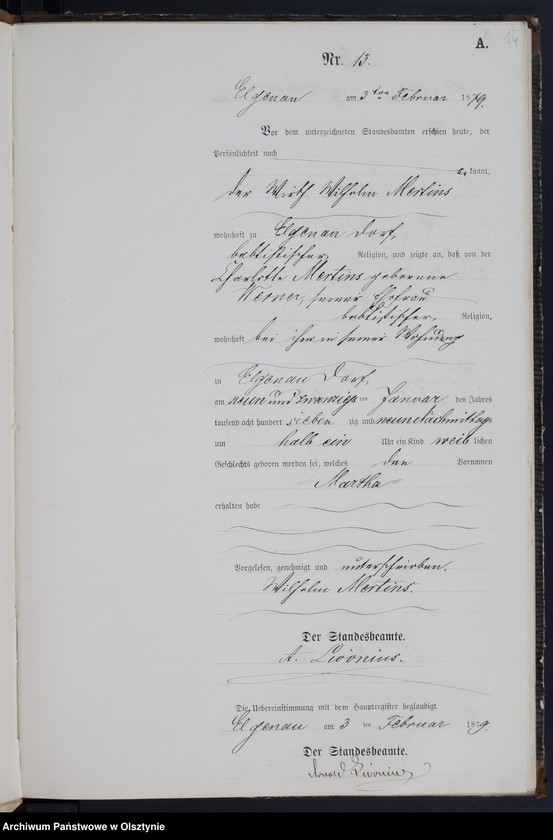 14
A.
Nr. 13.
Elgenau am 3ten Februar 1879.
Vor dem unterzeichneten Standesbamten erschien heute, der
Persönlichkeit nach
kannt,
der Wirth Wilhelm Mertins
wohnhaft zu Elgenau Dorf,
babtistischer Religion, und zeigte an, daß von der
Charlotte Mertins geborene
Werner, seiner Ehefrau
babtistischer Religion,
wohnhaft bei ihm in seiner Wohnung
zu Elgenau Dorf,
am neun und zwanzigten Januar des Jahres
tausend acht hundert sieben zig und neun Nachmittags
um halb ein Uhr ein Kind weib lichen
Geschlechts geboren worden sei, welches den Vornamen
Martha
erhalten habe
Vorgelesen, genehmigt und unterschrieben.
Wilhelm Mertins.
Der Standesbeamte.
A. Livonius.
Die Uebereinstimmung mit dem Hauptregister beglaubigt
Elgenau am 3 ten Februar 1879.
Der Standesbeamte.
Livonius
Archiwum Państwowe w Olsztynie